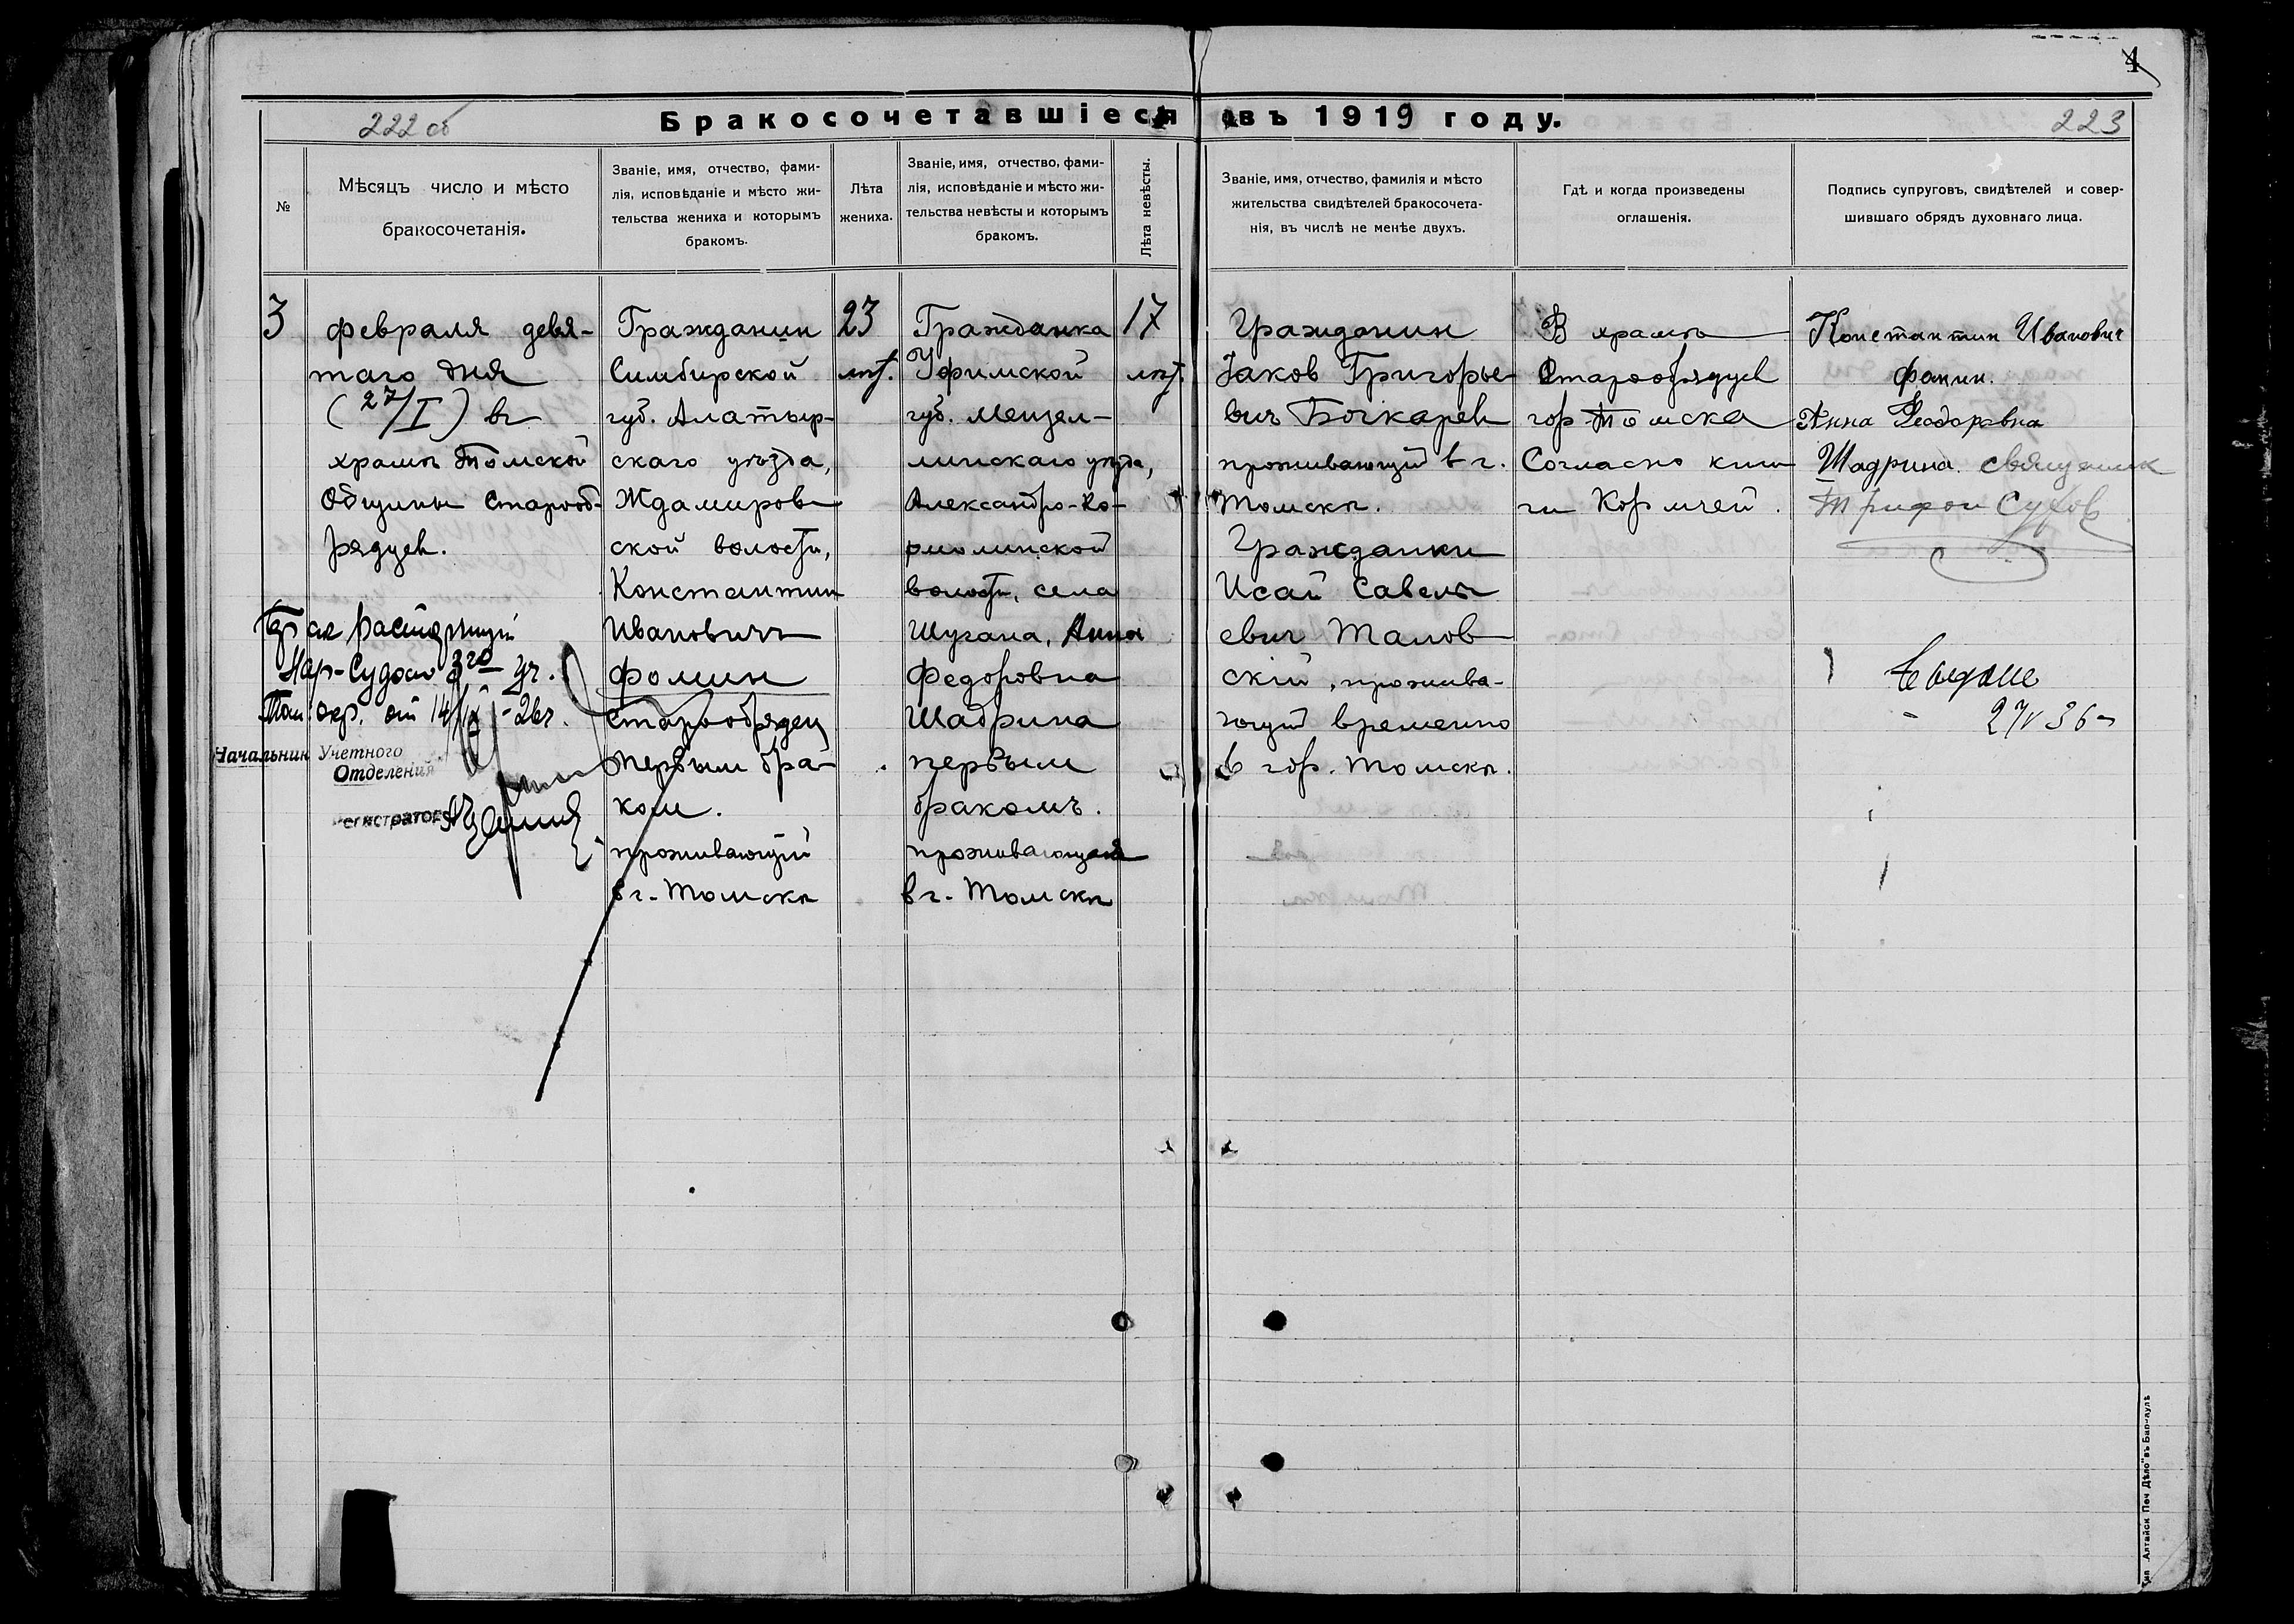 4
222 об
Бракосочетавшіеся въ 1919 году.
223
№
Мѣсяцъ число и мѣсто
бракосочетанія.
Званіе, имя, отчество, фами-
лія, исповѣданіе и мѣсто жи-
тельства жениха и которымъ
бракомъ.
Лѣта
жениха.
Званіе, имя, отчество, фами-
лія, исповѣданіе и мѣсто жи-
тельства невѣсты и которымъ
бракомъ.
Лѣта невѣсты.
Званіе, имя, отчество, фамилія и мѣсто
жительства свидѣтелей бракосочета-
нія, въ числѣ не менѣе двухъ.
Гдѣ и когда произведены
оглашенія.
Подпись супруговъ, свидѣтелей и совер-
шившаго обрядъ духовнаго лица.
3
февраля девя-
таго дня
(27/I) в
храмѣ Томской
Общины старооб-
рядцев.
Брак расторгнут
Нар-Судом 3го уч.
Том окр. от 14/
26г.
Начальник Учетного
Отделения
регистратор
Гражданин
Симбирской
губ. Алатыр-
скаго уѣзда,
Ждамиров-
ской волости,
Константин
Ивановичъ
Фомин
старообрядец
первым бра-
ком.
проживающій
в г. Томскѣ
23
лѣт.
Гражданка
Уфимской
губ. Мензел-
линскаго уѣзда,
Александро-Ка-
рмалинской
волости, села
Шугана, Анна
Федоровна
Шадрина
первым
бракомъ.
проживающая
в г. Томскѣ
17
лѣт.
Гражданин
Іаков Григорье-
вич Бочкарев
проживающій в г.
Томскѣ.
Гражданин
Исай Савель-
евич Талов-
скій, прожива-
ющій временно
в гор. Томскѣ.
В храмѣ
Старообрядцев
гор Томска
Согласно кни-
ги Кормчей.
Константин Иванович
Фомин.
Анна Феодоровна
Шадрина. священник
Трифон Сухов
27/V 36
Тип. Алтайск Печ Дѣло" въ Барнаулѣ